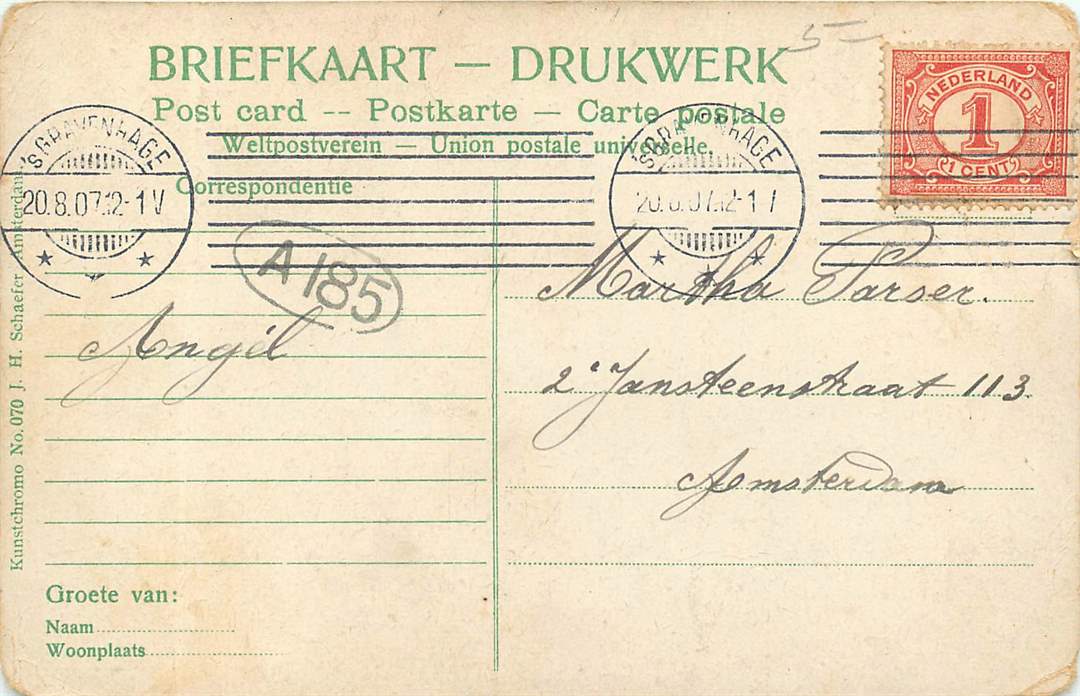 5-
BRIEFKAART — DRUKWERK
Post card -- Postkarte — Carte postale
Weltpostverein — Union postale universelle.
NEDERLAND
1
1 CENT
'SGRAVENHAGE
20.8.07.12-1 V
'SGRAVENHAGE
20.8.07.12-1
Correspondentie
A 185
Angél
Martha Parser.
2e Jansteenstraat 113
Amsterdam
Groete van:
Naam
Woonplaats
Kunstchromo No. 070 J. H. Schaefer Amsterdam.